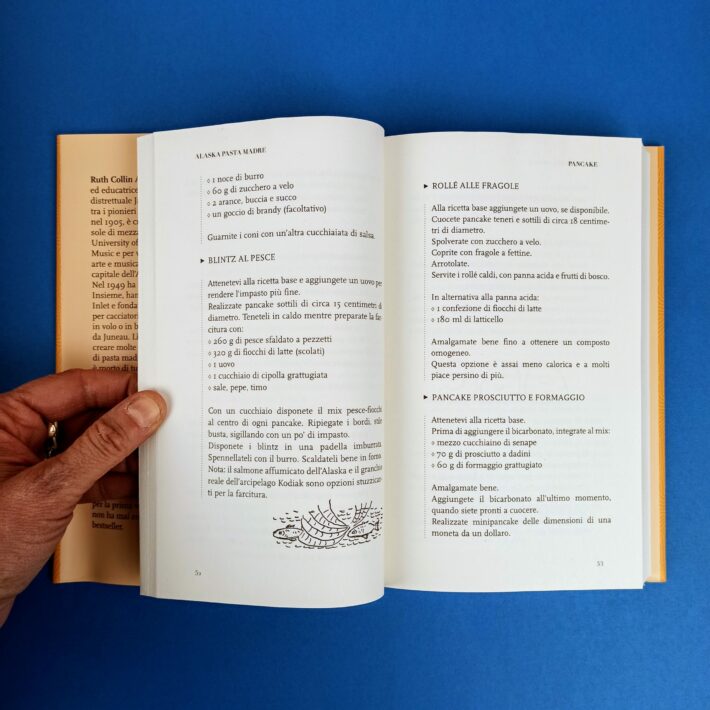 Ruth Collin A
ed educatrice
distrettuale J
tra i pionieri
nel 1905, è c
sole di mezza
University of
Music e per v
arte e musica
capitale dell'A
Nel 1949 ha
Insieme, han
Inlet e fonda
per cacciator
in volo o in b
da Juneau. Li
creare molte
di pasta mad
è morto di tu
per la prima
non ha mai
bestseller.
ALASKA PASTA MADRE
◊ 1 noce di burro
◊ 60 g di zucchero a velo
◊ 2 arance, buccia e succo
◊ un goccio di brandy (facoltativo)
Guarnite i coni con un'altra cucchiaiata di salsa.
▸ BLINTZ AL PESCE
Attenetevi alla ricetta base e aggiungete un uovo per
rendere l'impasto più fine.
Realizzate pancake sottili di circa 15 centimetri di
diametro. Teneteli in caldo mentre preparate la far-
citura con:
◊ 260 g di pesce sfaldato a pezzetti
◊ 320 g di fiocchi di latte (scolati)
◊ 1 uovo
◊ 1 cucchiaio di cipolla grattugiata
◊ sale, pepe, timo
Con un cucchiaio disponete il mix pesce-fiocchi
al centro di ogni pancake. Ripiegate i bordi, stile
busta, sigillando con un po' di impasto.
Disponete i blintz in una padella imburrata.
Spennellateli con il burro. Scaldateli bene in forno.
Nota: il salmone affumicato dell'Alaska e il granchio
reale dell'arcipelago Kodiak sono opzioni stuzzican-
ti per la farcitura.
52
PANCAKE
▸ ROLLÉ ALLE FRAGOLE
Alla ricetta base aggiungete un uovo, se disponibile.
Cuocete pancake teneri e sottili di circa 18 centime-
tri di diametro.
Spolverate con zucchero a velo.
Coprite con fragole a fettine.
Arrotolate.
Servite i rollé caldi, con panna acida e frutti di bosco.
In alternativa alla panna acida:
◊ 1 confezione di fiocchi di latte
◊ 180 ml di latticello
Amalgamate bene fino a ottenere un composto
omogeneo.
Questa opzione è assai meno calorica e a molti
piace persino di più.
▸ PANCAKE PROSCIUTTO E FORMAGGIO
Attenetevi alla ricetta base.
Prima di aggiungere il bicarbonato, integrate al mix:
◊ mezzo cucchiaino di senape
◊ 70 g di prosciutto a dadini
◊ 60 g di formaggio grattugiato
Amalgamate bene.
Aggiungete il bicarbonato all'ultimo momento,
quando siete pronti a cuocere.
Realizzate minipancake delle dimensioni di una
moneta da un dollaro.
53